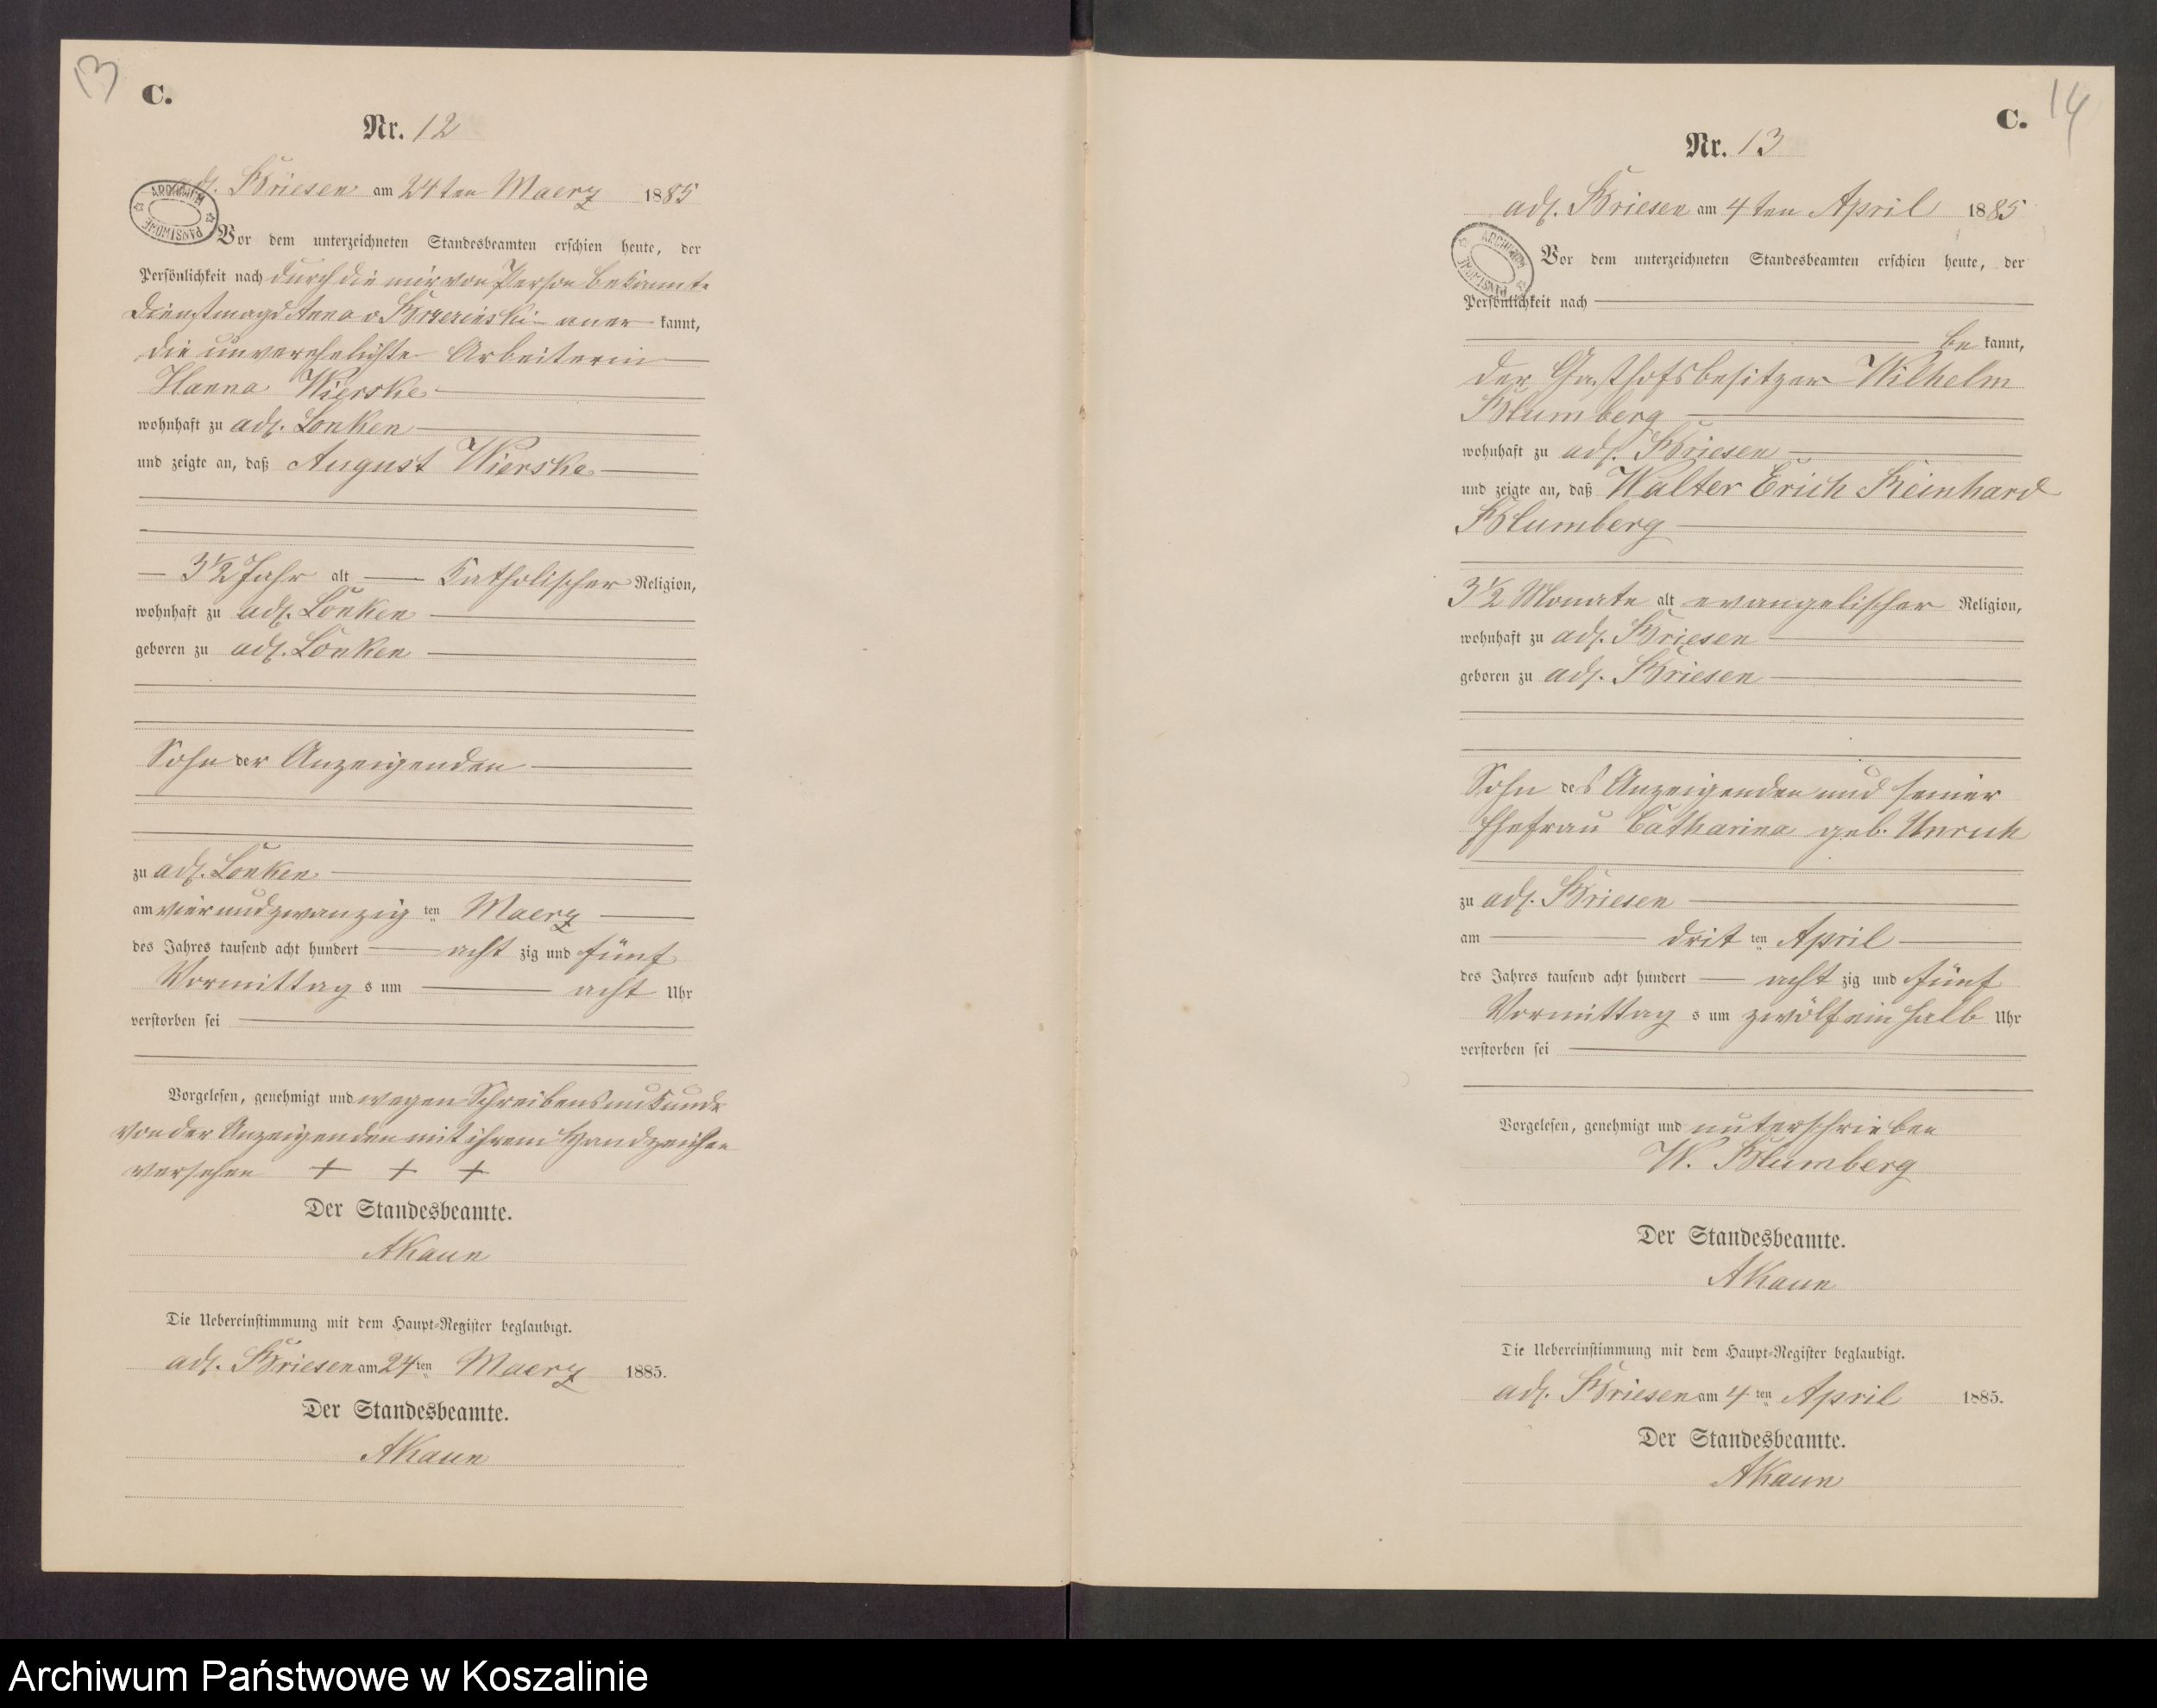 13
C.
Nr. 12
adl. Briesen am 24ten Maerz 1885
ARCHIWUM
PAŃSTWOWE
Vor dem unterzeichneten Standesbeamten erschien heute, der
Persönlichkeit nach durch die mir von Person bekannte
Dienstmagd Anna v. aner kannt,
die unverehelichte Arbeiterin
Hanna Wierske
wohnhaft zu adl. Lonken
und zeigte an, daß August Wierske
3 1/2 Jahr alt katholischer Religion,
wohnhaft zu adl. Lonken
geboren zu adl. Lonken
Sohn der Anzeigenden
zu adl. Lonken
am vierundzwanzig ten Maerz
des Jahres tausend acht hundert acht zig und fünf
Vormittag s um acht Uhr
verstorben sei
Vorgelesen, genehmigt und wegen Schreibensunkunde
von der Anzeigenden mit ihrem Handzeichen
versehen + + +
Der Standesbeamte.
AKaun
Die Uebereinstimmung mit dem Haupt-Register beglaubigt.
adl. Briesen am 24ten Maerz 1885.
Der Standesbeamte.
AKaun
14
C.
Nr. 13
adl. Briesen am 4ten April 1885
ARCHIWUM
PAŃSTWOWE
Vor dem unterzeichneten Standesbeamten erschien heute, der
Persönlichkeit nach
be kannt,
der Gasthofsbesitzer Wilhelm
Blumberg
wohnhaft zu adl. Briesen
und zeigte an, daß Walter Erich Reinhard
Blumberg
3 1/2 Monate alt evangelischer Religion,
wohnhaft zu adl. Briesen
geboren zu adl. Briesen
Sohn des Anzeigenden und seiner
Ehefrau Catharina geb. Unruh
zu adl. Briesen
am drit ten April
des Jahres tausend acht hundert acht zig und fünf
Vormittag s um zwölf ein halb Uhr
verstorben sei
Vorgelesen, genehmigt und unterschrieben
W. Blumberg
Der Standesbeamte.
AKaun
Die Uebereinstimmung mit dem Haupt-Register beglaubigt.
adl. Briesen am 4ten April 1885.
Der Standesbeamte.
AKaun
Archiwum Państwowe w Koszalinie